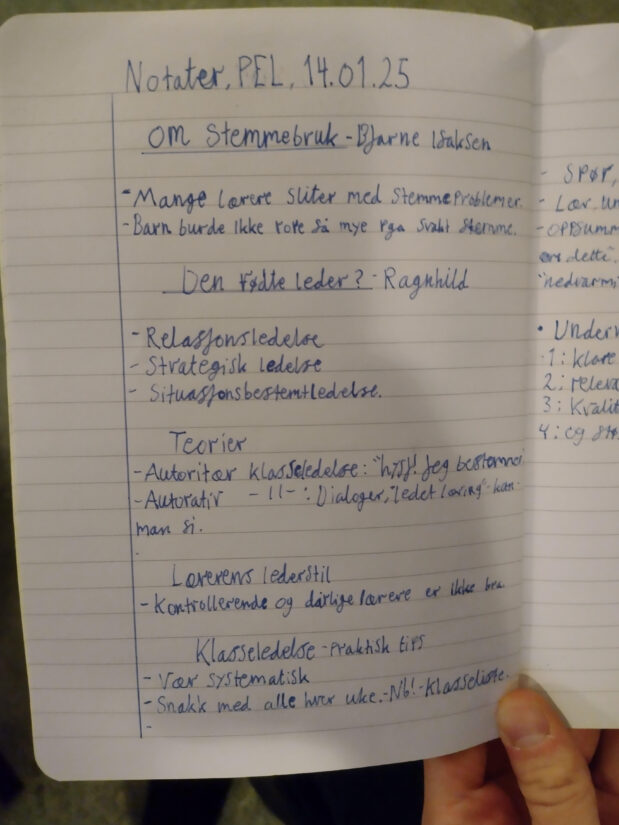 Notater, PEL, 14.01.25
Om Stemmebruk - Bjarne Isaksen
- Mange lærere sliter med stemmeproblemer.
- Barn burde ikke rope så mye pga svakt stemme.
Den fødte leder? - Ragnhild
- Relasjonsledelse
- Strategisk ledelse
- Situasjonsbestemtledelse.
Teorier
- Autoritær klasseledelse: "hysj! Jeg bestemmer
- Autorativ - 11 - : Dialoger, "ledet læring" kan
man si.
Lærerens lederstil
- Kontrollerende og dårlige lærere er ikke bra.
Klasseledelse - praktisk tips
- Vær systematisk
- Snakk med alle hver uke. - Nb! - Klasseliste.
-
- Spør,
- Lær. un
- Oppsumm
dette".
"nedvarmi
• Underv
1: klare
2: releva
3: Kvalit
4: og stø